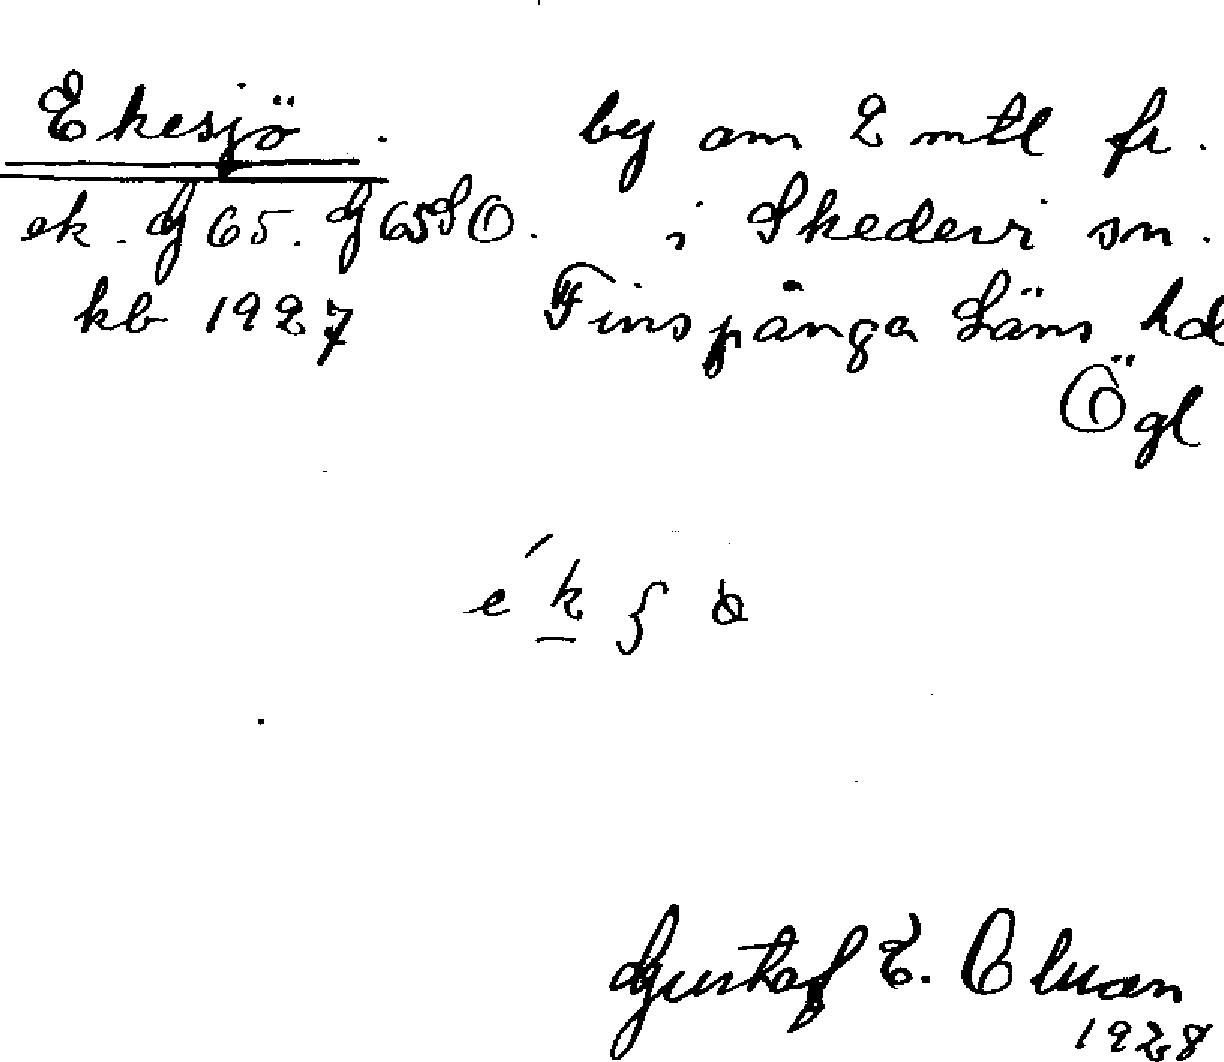 Ekesjö. by om 2 mtl fr.
ek. G 65. G 65 SO. i Skedevi sn.
kb 1927 Finspånga Läns hd
Ögl
Gustaf E.
1928